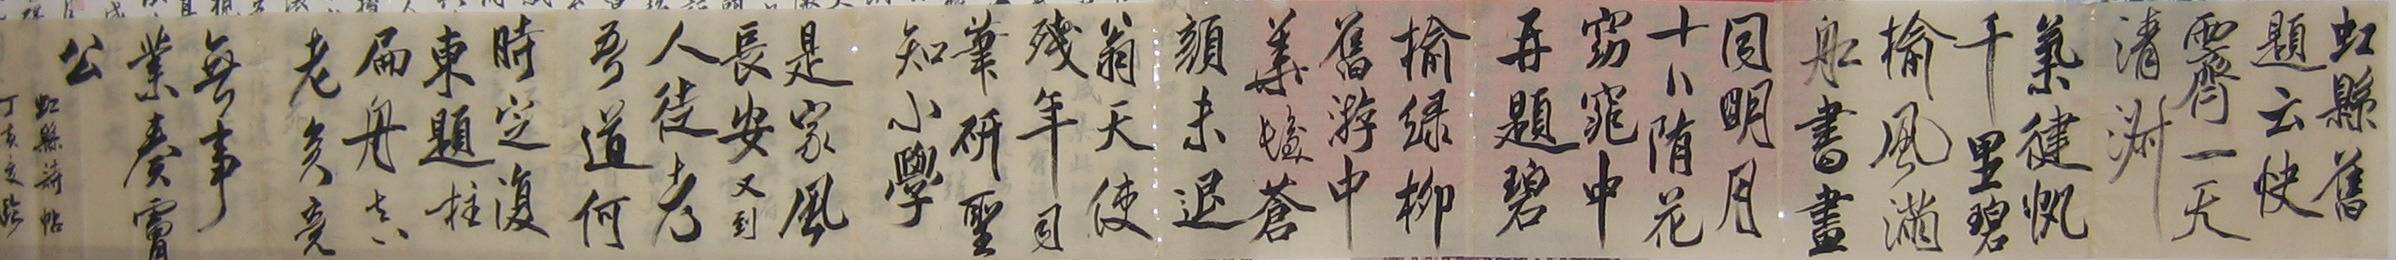 虹縣舊
題云快
霽一天
清淑
氣健帆
千里碧
榆風滿
舡書畫
同明月
十八隋花
窈窕中
再題碧
榆綠柳
舊游中
華髮蒼
顏未退
翁天使
殘年司
筆研聖
知小學
是家風
長安又到
人徒老
吾道何
時定復
東題柱
扁舟真
老矣竟
無事
業奏膚
公
虹縣詩帖
丁亥